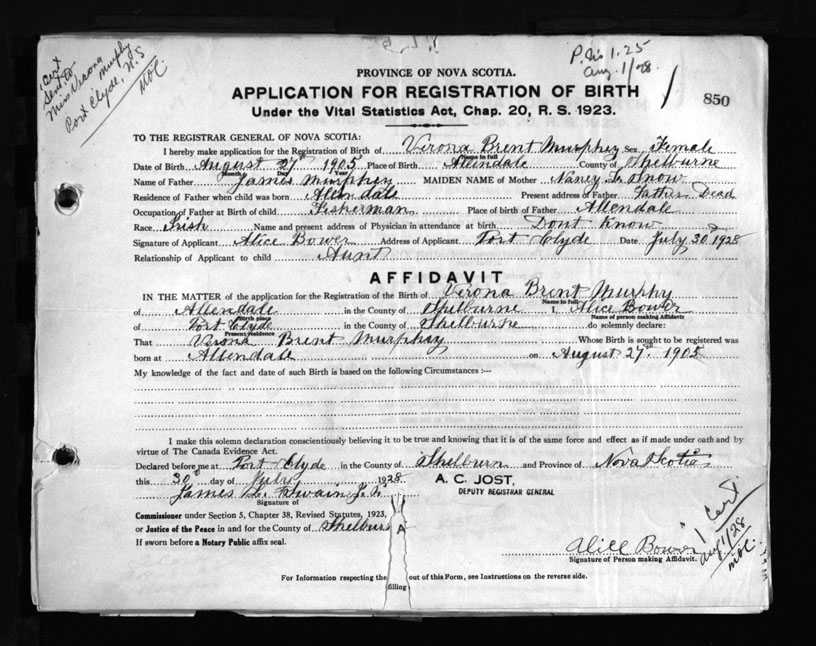 Cert
Sent to
Miss Verona
Murphy
Port Clyde, N.S
MOC
P. No 1.25
Aug. 1/28.
PROVINCE OF NOVA SCOTIA.
APPLICATION FOR REGISTRATION OF BIRTH
Under the Vital Statistics Act, Chap. 20, R. S. 1923.
850
TO THE REGISTRAR GENERAL OF NOVA SCOTIA:
I hereby make application for the Registration of Birth of Verona Brent Murphy Sex Female
Name in full
Date of Birth August 27th 1905 Place of Birth Allendale County of Shelburne
Month Day Year
Name of Father James Murphy MAIDEN NAME of Mother Nancy L. Snow
Residence of Father when child was born Allendale Present address of Father Father Dead
Occupation of Father at Birth of child Fisherman Place of birth of Father Allendale
Race Irish Name and present address of Physician in attendance at birth Dont Know
Signature of Applicant Alice Bower Address of Applicant Port Clyde Date July 30th 1928
Relationship of Applicant to child Aunt
AFFIDAVIT
IN THE MATTER of the application for the Registration of the Birth of Verona Brent Murphy
Name in full
of Allendale in the County of Shelburne I, Alice Bower
Birth place Name of person making Affidavit
of Port Clyde in the County of Shelburne do solemnly declare:
Present residence
That Verona Brent Murphy Whose Birth is sought to be registered was
born at Allendale on August 27th 1905
My knowledge of the fact and date of such Birth is based on the following Circumstances :—
I make this solemn declaration conscientiously believing it to be true and knowing that it is of the same force and effect as if made under oath and by
virtue of The Canada Evidence Act.
Declared before me at Port Clyde in the County of Shelburn and Province of Nova Scotia
this 30th day of July 1928
A. C. JOST,
DEPUTY REGISTRAR GENERAL
James L. Swain J.P.
Signature of
Commissioner under Section 5, Chapter 38, Revised Statutes, 1923,
or Justice of the Peace in and for the County of Shelburne
If sworn before a Notary Public affix seal.
1 Cert
Aug 1/28
MOC.
Alice Bower
Signature of Person making Affidavit.
For Information respecting the filling out of this Form, see Instructions on the reverse side.